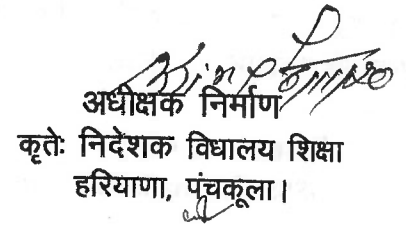 अधीक्षक निर्माण
कृतेः निदेशक विधालय शिक्षा
हरियाणा, पंचकूला।